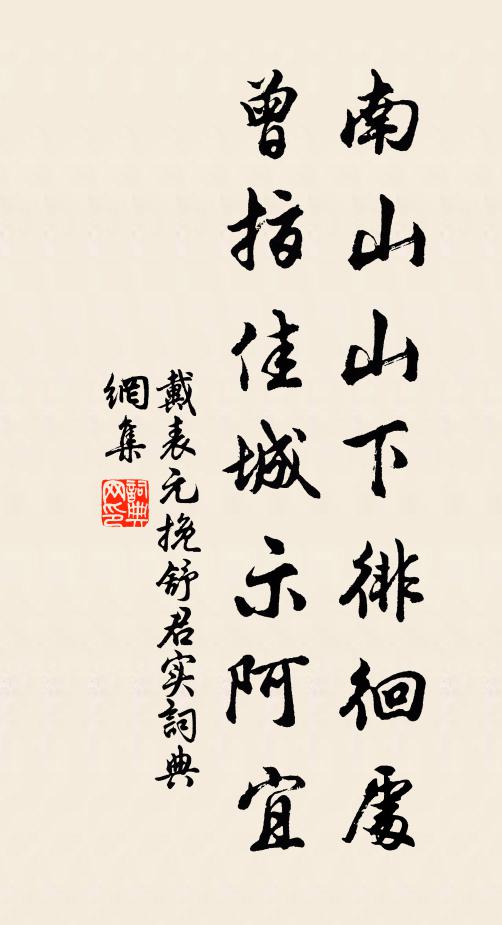 南山山下徘徊處
曾指佳城示阿宜
戴表元挽舒君实詞典
網集
詞典
网印